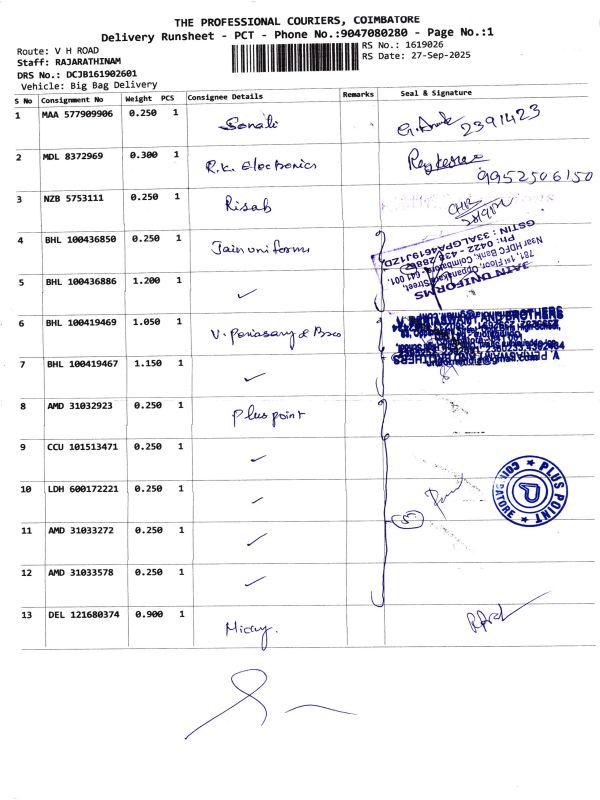 THE PROFESSIONAL COURIERS, COIMBATORE
Delivery Runsheet - PCT - Phone No.:9047080280 - Page No.:1
Route: V H ROAD
RS No.: 1619026
Staff: RAJARATHINAM
RS Date: 27-Sep-2025
DRS No.: DCJB161902601
Vehicle: Big Bag Delivery
S No Consignment No Weight PCS Consignee Details Remarks Seal & Signature
1 MAA 577909906 0.250 1 Sonali 2391423
2 MDL 8372969 0.300 1 R.K. Electronics
9952506150
3 NZB 5753111 0.250 1 Risab
4 BHL 100436850 0.250 1 Jain uniforms
JAIN UNIFORMS
781, 1st Floor, Oppanakara Street,
Near HDFC Bank, Coimbatore - 641 001.
GSTIN : 33ALGPA4619J1ZD
5 BHL 100436886 1.200 1 ✓
6 BHL 100419469 1.050 1 V. Periasamy & Bros
7 BHL 100419467 1.150 1 ✓
8 AMD 31032923 0.250 1 Plus point
9 CCU 101513471 0.250 1 ✓
10 LDH 600172221 0.250 1 ✓
PLUS POINT
COIMBATORE
5
11 AMD 31033272 0.250 1 ✓
12 AMD 31033578 0.250 1 ✓
13 DEL 121680374 0.900 1